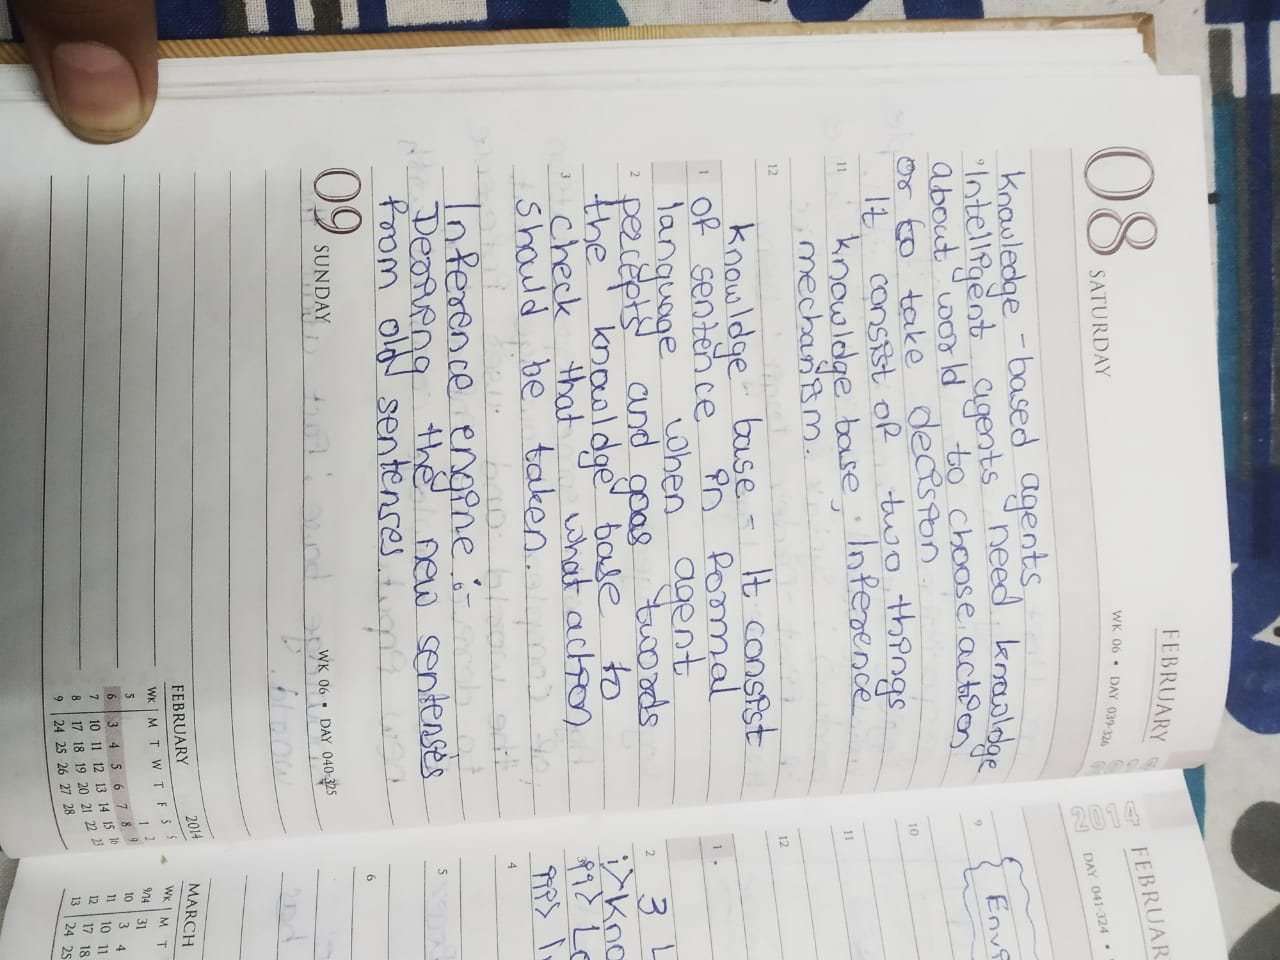 08 SATURDAY
FEBRUARY
WK 06 • DAY 039-326
Knowledge - based agents
Intelligent agents need knowldge
About world to choose action
or to take decision.
It consist of two things
11 knowldge base, Inference
mechanism.
12
knowldge base - It consist
1 of sentence in formal
language when agent
2 percepts and goas twords
the knowldge base to
3 check that what action
should be taken.
Inference engine :-
Deriving the new sentenses
from old sentenses.
09 SUNDAY
WK 06 • DAY 040-325
FEBRUARY 2014
WK M T W T F S S
5 1 2
6 3 4 5 6 7 8 9
7 10 11 12 13 14 15 16
8 17 18 19 20 21 22 23
9 24 25 26 27 28
2014
FEBRUAR
DAY 041-324 •
9 Envi
10
11
12
1
2 3 L
i> Kno
ii> Lo
iii> I
4
5
6
MARCH
WK M T
9/14 31
10 3 4
11 10 11
12 17 18
13 24 25